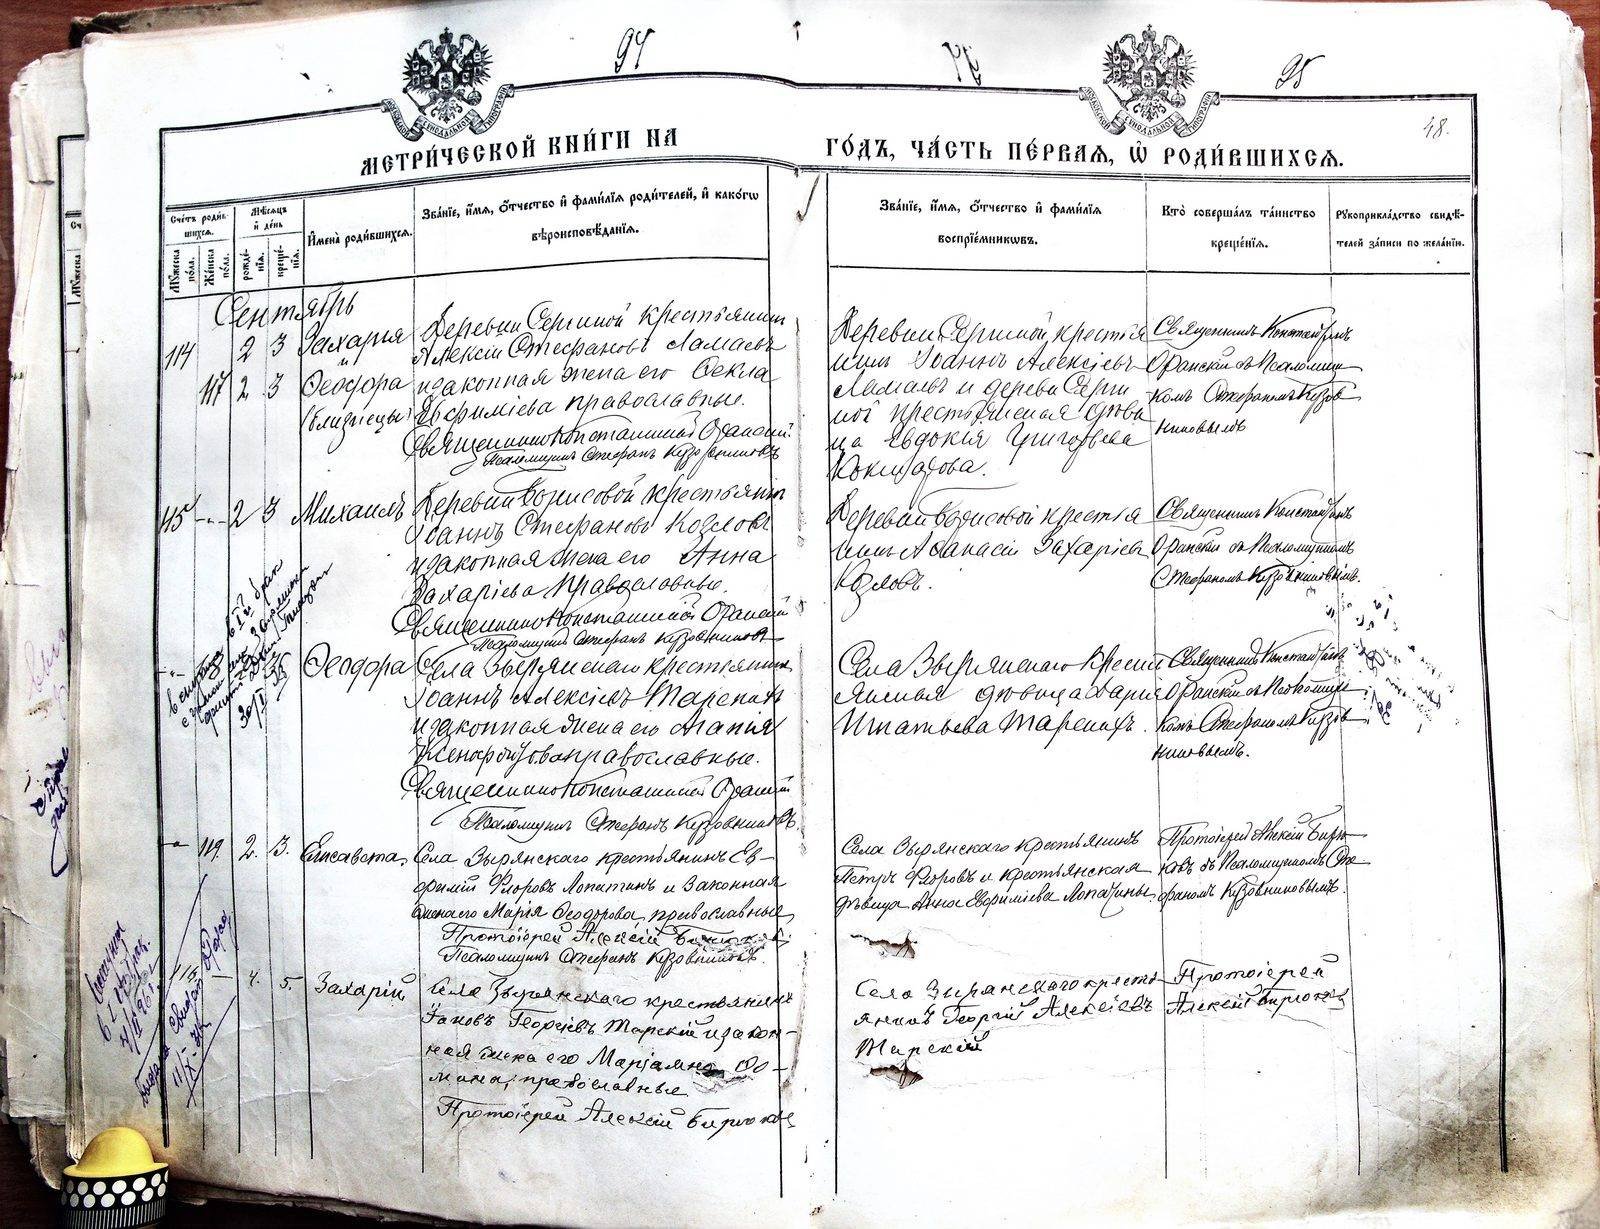 94
95
48.
МЕТРИ́ЧЕСКОЙ КНИ́ГИ НА
ГО́ДЪ, ЧА́СТЬ ПЕ́РВАЯ, Ѿ РОДИ́ВШИХСЯ.
Сче́тъ роди́вшихся.
Му́жеска по́ла.
Же́нска по́ла.
Мѣ́сяцъ и де́нь
рожде́нїя.
креще́нїя.
И҆мена̀ роди́вшихся.
Зва́нїе, и҆́мя, ѻ҆́тчество и҆ фами́лїя роди́телей, и҆ како́гѡ
вѣроисповѣ́данїя.
Зва́нїе, и҆́мя, ѻ҆́тчество и҆ фами́лїя
воспрїе́мниковъ.
Кто̀ соверша́лъ та́инство
креще́нїя.
Рукоприкла́дство свидѣ́телей за́писи по жела́нїю.
Сентябрь
114 2 3 Захарія
и
117 2 3 Ѳеодора
(близнецы)
Деревни Сергиной крестьянинъ
Алексій Стефановъ
и законная жена его Ѳекла
Евфиміева православные.
Священникъ Константинъ Оранскій.
Псаломщикъ Стефанъ Кузовниковъ
Деревни Сергиной, крестья
нинъ Іоаннъ Алексіевъ
и деревни Серги
ной крестьянская дѣви
ца Евдокія Григорьева
Священникъ Константинъ
Оранскій съ Псаломщи
комъ Стефаномъ Кузов
никовымъ
115 2 3 Михаилъ
Деревни Борисовой крестьянинъ
Іоаннъ Стефановъ Козловъ
и законная жена его Анна
Захаріева православные.
Священникъ Константинъ Оранскій
Псаломщикъ Стефанъ Кузовниковъ
Деревни Борисовой крестья
нинъ Аѳанасій Захаріевъ
Козловъ.
Священникъ Константинъ
Оранскій съ Псаломщикомъ
Стефаномъ Кузовниковымъ.
Ѳеодора
Села Зырянскаго крестьянинъ
Іоаннъ Алексіевъ Тарскихъ
и законная жена его Агапія
Ксенофонтова православные.
Священникъ Константинъ Оранскій
Псаломщикъ Стефанъ Кузовниковъ.
Села Зырянскаго крестья
янская дѣвица Дарія
Игнатьева Тарскихъ.
Священникъ Константинъ
Оранскій съ Псаломщи
комъ Стефаномъ Кузов
никовымъ.
119. 2. 3. Елисавета
Села Зырянскаго крестьянинъ Ев-
фимій Ѳеоровъ Лопатинъ и законная
жена его Марія Ѳеодорова, православные
Протоіерей Алексій Бирюковъ
Псаломщикъ Стефанъ Кузовниковъ.
Села Зырянскаго крестьянинъ
Петръ Ѳеоровъ и крестьянская
дѣвица Анна Евфиміева Лопатины
Протоіерей Алексій Бирю
ковъ съ Псаломщикомъ Сте
фаномъ Кузовниковымъ.
116. 4. 5. Захарій
Села Зырянскаго крестьянинъ
Іаковъ Георгіевъ Тарскій и закон-
ная жена его Маріамна Ѳо-
мина, православные
Протоіерей Алексій Бирюковъ
Села Зырянскаго кресть
янинъ Георгій Алексіевъ
Тарскій
Протоіерей
Алексій Бирюковъ